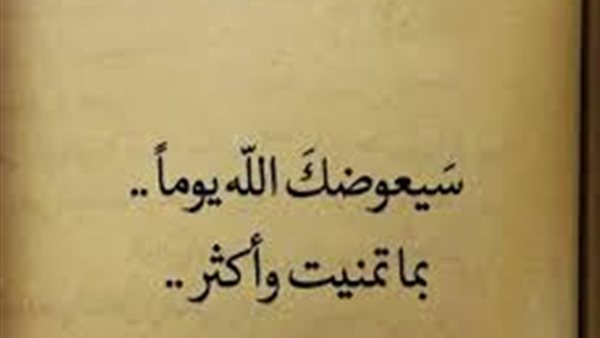 سَيعوضكَ اللّه يوماً ..
بما تمنيت وأكثر ..